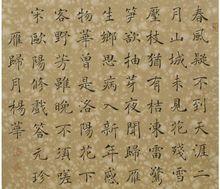 春風疑不到天涯二
月山城未見花殘雪
壓枝猶有桔凍雷驚
笋欲抽芽夜聞歸雁
生鄉思病入新年感
物華曾是洛陽花下
客野芳雖晚不須嗟
宋歐陽修戲答元珍
雁歸月楊華